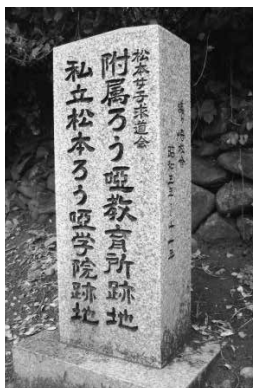 松本女子求道会
附属ろう啞教育所跡地
私立松本ろう啞学院跡地